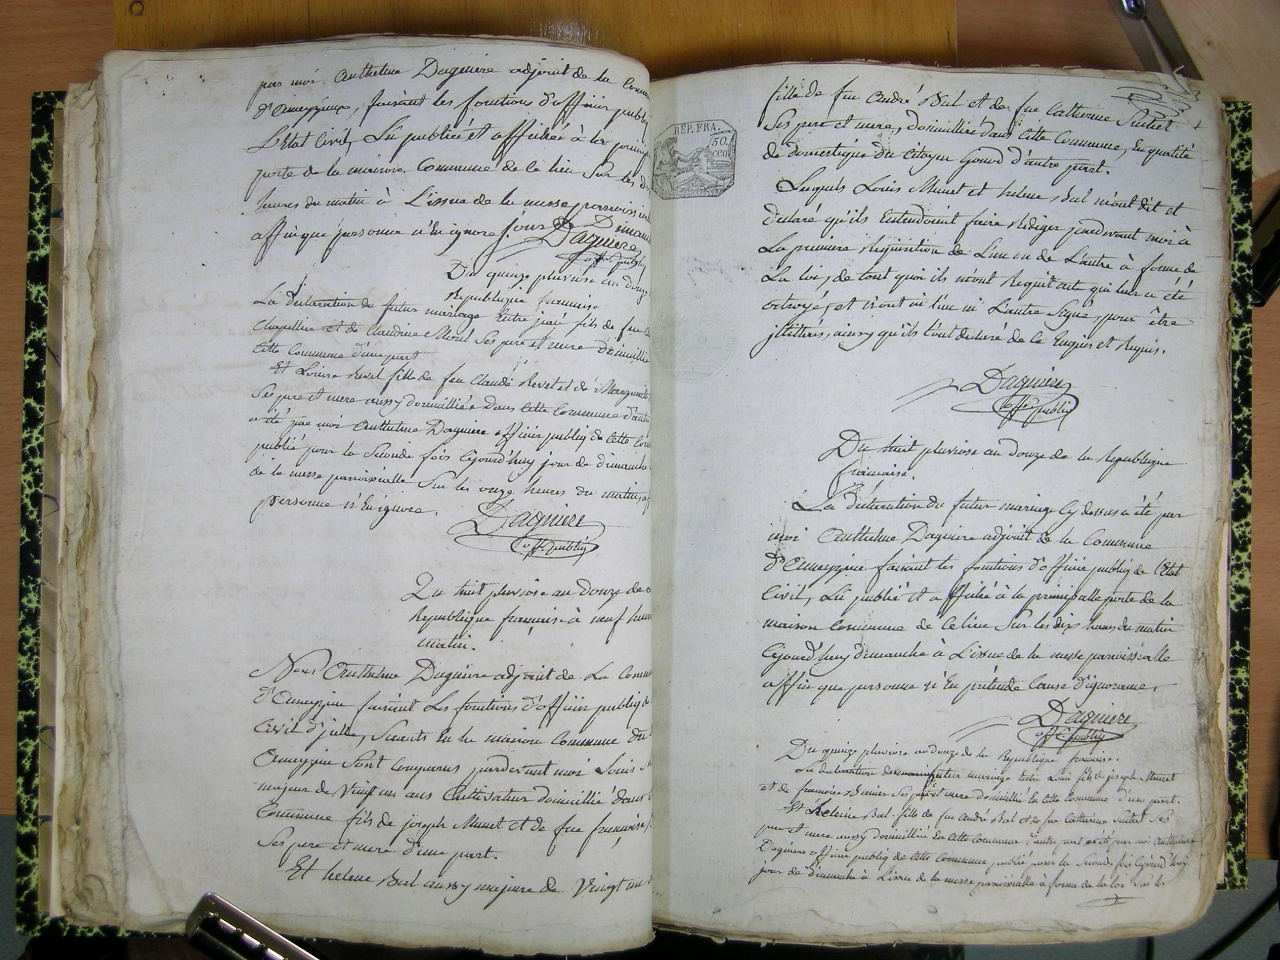 par moi Anthelme Daguiere adjoint de la Comm
d'Ameyzieu, faisant les fonctions d'officier public
L'Etat Civil, Lû publiée et affichée à la princip
porte de la maison Commune de ce lieu sur les d
heures du matin à L'issue de la messe paroissial
affin que personne n'en ignore jour de Dimanche
Daguiere
offr. public
Du quinze pluviose an douze
Republique francaise
La déclaration de futur mariage Entre fils de feu
Chapellier et de Claudine Morel Ses pere et mere domicilié
Cette Commune d'une part
Et Louise Revel fille de feu Claude Revel et de Marguerite
Ses pere et mere aussy domicilliée dans cette Commune d'autre
a été par moi Anthelme Daguiere officier public de Cette Com
publié pour la Seconde fois Cejourd'huy jour de dimanche
de la messe paroissialle Sur les onze heures du matin, a
personne n'En ignore.
Daguiere
offr. public
Du huit pluviose an Douze de
Republique française à neuf heur
matin.
Nous Anthelme Daguiere adjoint de La Commu
d'Ameyzieu faisant Les fonctions d'officier public de
Civil d'icelle, Sceants en la maison Commune du
Ameyzieu Sont Comparus pardevant moi Louis
majeur de Vingt un ans Cultivateur domicillié dans
Commune fils de joseph Munet et de feu françoise
Ses pere et mere d'une part.
Et helene Biel aussy majeure de Vingt un
REP. FRA.
50.
fille de feu André Biel et de feue Catherine Suchet
Ses pere et mere, domicilliée dans Cette Commune, En qualité
de domestique du Citoyen Gourd d'autre part.
Lesquels Louis Munet et helene Biel m'ont dit et
declaré qu'ils Entendoient faire Rediger pardevant moi à
La premiere Requisition de L'un ou de L'autre à forme de
La loi, de tout quoi ils m'ont Requit acte qui leur a été
octroyé, et n'ont ni l'un ni L'autre Signé pour être
jlletrés, ainsy qu'ils l'ont declaré de ce Enquis et Requis.
Daguiere
offr. public
Du huit pluviose an douze de la Republique
francaise.
La déclaration du futur mariage Cy dessus a été par
moi Anthelme Daguiere adjoint de la Commune
d'Ameyzieu faisant les fonctions d'officier public de l'Etat
Civil, Lû publié et affiché à la principalle porte de la
maison Commune de Ce lieu Sur les dix heures du matin
Cejourd'huy dimanche à L'issue de la messe paroissialle
affin que personne n'En pretende Cause d'ignorance.
Daguiere
offr. public
Du quinze pluviose an douze de la Republique francaise.
La déclaration de futur mariage Entre Louis fils de joseph Munet
et de francoise Ses pere et mere domicillié En Cette Commune d'une part.
Et Heleine Biel fille de feu André Biel et de feue Catherine Suchet Ses
pere et mere aussy domicilliée En Cette Commune d'autre part a été par moi Anthelme
Daguiere officier public de Cette Commune, publié pour la Seconde fois Cejourd'huy
jour de dimanche à L'issue de la messe paroissialle à forme de la loi